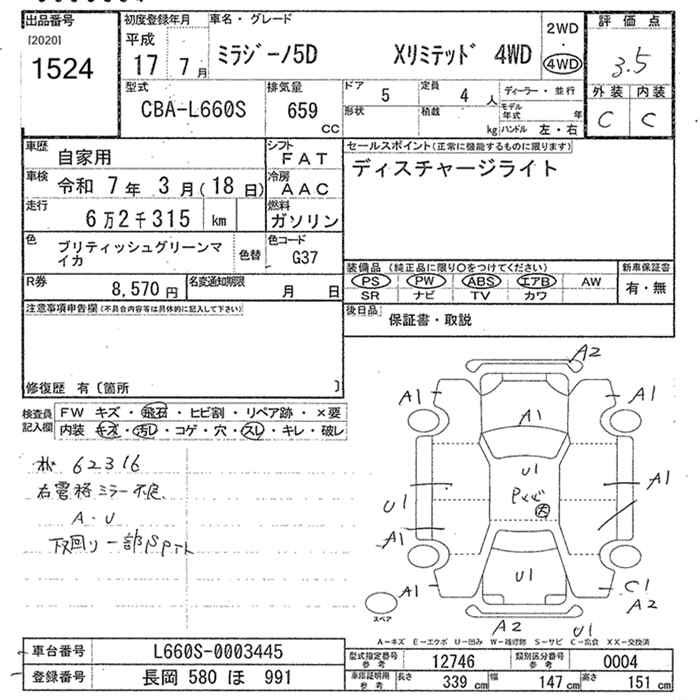 出品番号
[2020]
1524
初度登録年月
平成
17 7月
車名・グレード
ミラジーノ5D Xリミテッド 4WD
2WD
・
4WD
評価点
3.5
外装 内装
C C
型式
CBA-L660S
排気量
659
CC
ドア 5
定員 4 人
ディーラー・並行
形状
積載 kg
モデル年式 年
ハンドル 左・右
車歴 自家用
シフト FAT
車検 令和 7年 3月(18日)
冷房 AAC
走行 6万2千315 km
燃料 ガソリン
色 ブリティッシュグリーンマイカ
色替
色コード G37
R券 8,570円
名変通知期限 月 日
セールスポイント(正常に機能するものに限ります)
ディスチャージライト
装備品 (純正品に限り〇をつけてください)
PS PW ABS エアB AW
SR ナビ TV カワ
新車保証書
有・無
後日品 保証書・取説
注意事項申告欄(不具合内容等は具体的に記入して下さい)
修復歴 有〔箇所 〕
検査員記入欄
FW キズ・飛石・ヒビ割・リペア跡・×要
内装 キズ・汚レ・コゲ・穴・スレ・キレ・破レ
62316
右電格ミラー不良
A・U
下回り一部
A2
A1
A1
A1
U1
A1
U1
A1
A1
U1
A1
C1
A2
スペア
A2
U1
A-キズ E-エクボ U-凹み W-補修跡 S-サビ C-腐食 XX-交換済
車台番号 L660S-0003445
登録番号 長岡 580 ほ 991
型式指定番号 参考 12746
類別区分番号 参考 0004
車庫証明用 参考
長さ 339 cm
幅 147 cm
高さ 151 cm